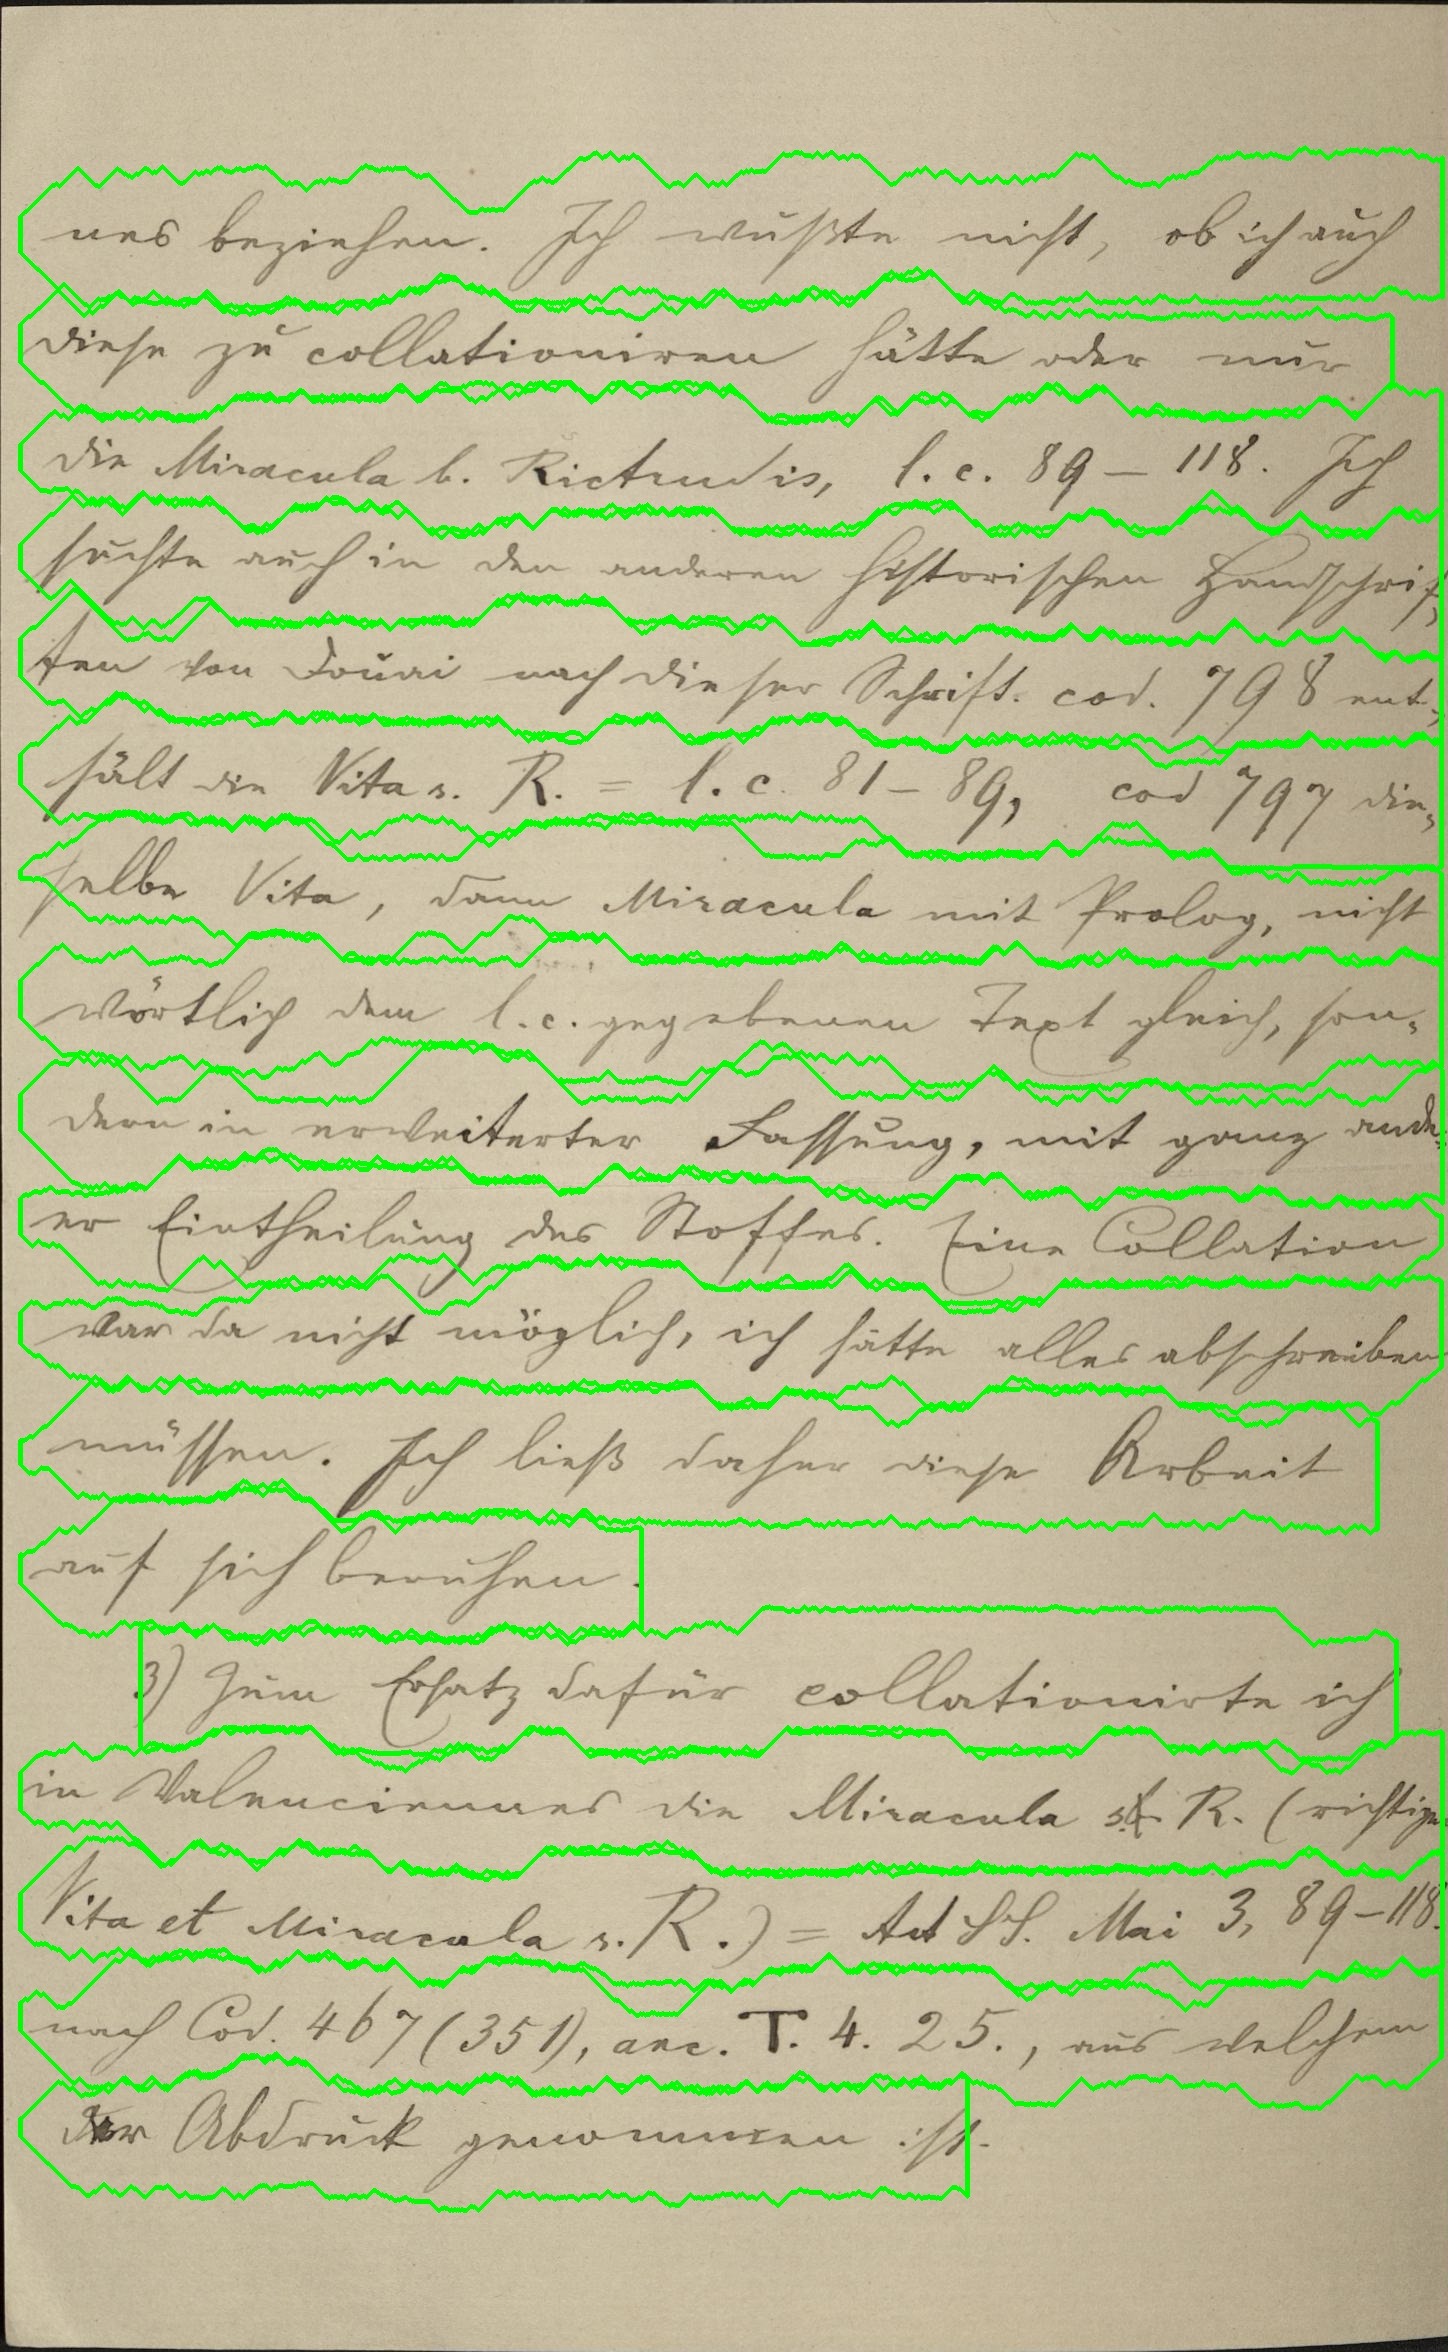 nes beziehen. Ich wußte nicht, ob ich auch
diese zu collationiren hätte oder nur
die Miracula b. Rictrudis, l. c. 89 – 118. Ich
suchte auch in den anderen historischen Handschrif-
ten von Douai nach dieser Schrift. cod. 798 ent-
hält die Vita s. R. = l. c. 81 – 89, cod 797 die-
selbe Vita, dann Miracula mit Prolog, nicht
wörtlich dem l. c. gegebenen Text gleich, son-
dern in erweiterter Fassung, mit ganz ande-
er Eintheilung des Stoffes. Eine Collation
war da nicht möglich, ich hätte alles abschreiben
müssen. Ich ließ daher diese Arbeit
auf sich beruhen.
3) Zum Ersatz dafür collationirte ich
in Valenciennes die Miracula s. R. (richtige
Vita et Miracula s. R.) = Act SS. Mai 3, 89 – 118.
nach Cod. 467 (351), anc. T. 4. 25., aus welchem
der Abdruck genommen ist.